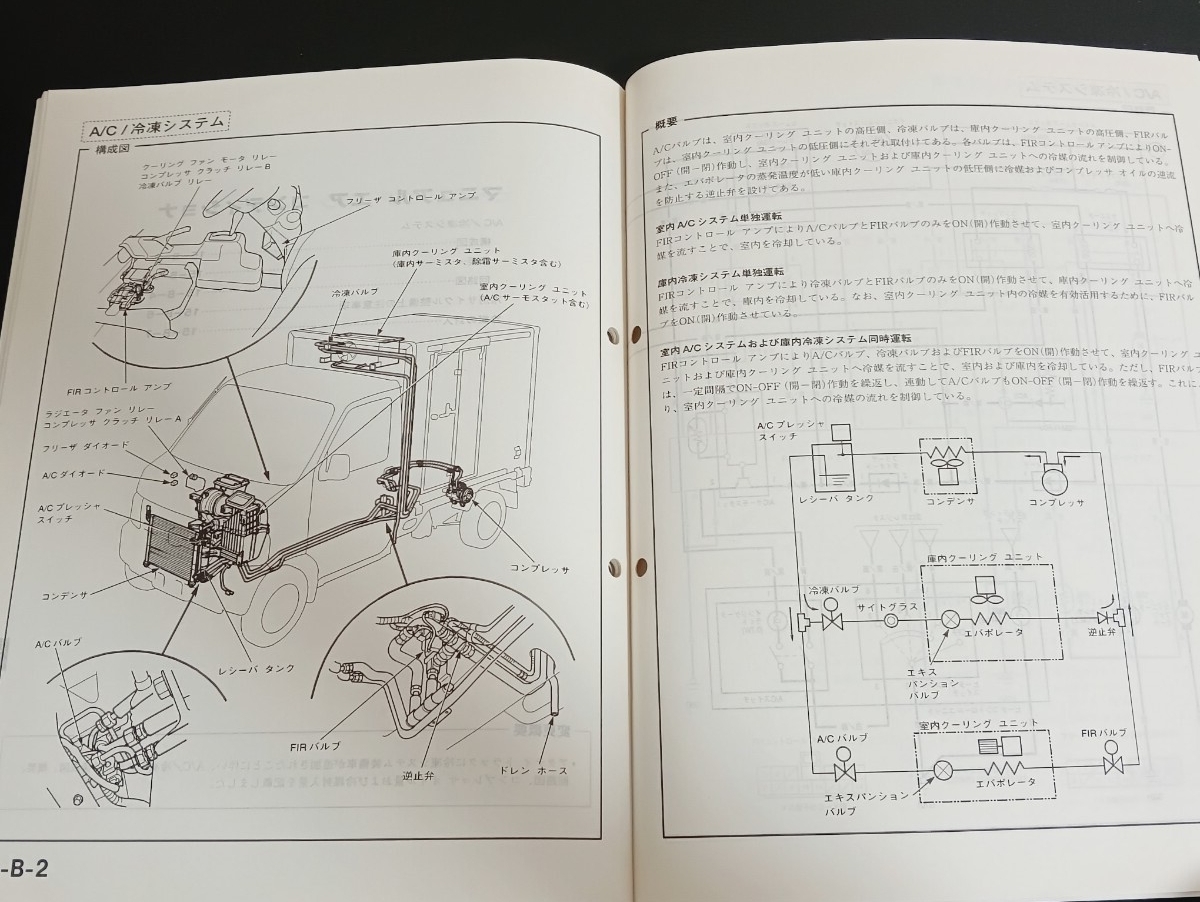 A/C / 冷凍システム
構成図
クーリング ファン モータ リレー
コンプレッサ クラッチ リレーB
冷凍バルブ リレー
フリーザ コントロール アンプ
庫内クーリング ユニット
(庫内サーミスタ、除霜サーミスタ含む)
冷凍バルブ
室内クーリング ユニット
(A/C サーモスタット含む)
FIRコントロール アンプ
ラジエータ ファン リレー
コンプレッサ クラッチ リレーA
フリーザ ダイオード
A/C ダイオード
A/C プレッシャ
スイッチ
コンデンサ
コンプレッサ
A/C バルブ
レシーバ タンク
FIR バルブ
逆止弁
ドレン ホース
-B-2
概要
A/Cバルブは、室内クーリング ユニットの高圧側、冷凍バルブは、庫内クーリング ユニットの高圧側、FIRバル
ブは、室内クーリング ユニットの低圧側にそれぞれ取付けてある。各バルブは、FIRコントロール アンプによりON-
OFF (開－閉)作動し、室内クーリング ユニットおよび庫内クーリング ユニットへの冷媒の流れを制御している。
また、エバポレータの蒸発温度が低い庫内クーリング ユニットの低圧側に冷媒およびコンプレッサ オイルの逆流
を防止する逆止弁を設けてある。
室内 A/C システム単独運転
FIRコントロール アンプによりA/CバルブとFIRバルブのみをON(開)作動させて、室内クーリング ユニットへ冷
媒を流すことで、室内を冷却している。
庫内冷凍システム単独運転
FIRコントロール アンプにより冷凍バルブとFIRバルブのみをON(開)作動させて、庫内クーリング ユニットへ冷
媒を流すことで、庫内を冷却している。なお、室内クーリング ユニット内の冷媒を有効活用するために、FIRバル
ブをON(開)作動させている。
室内 A/C システムおよび庫内冷凍システム同時運転
FIRコントロール アンプによりA/Cバルブ、冷凍バルブおよびFIRバルブをON(開)作動させて、室内クーリング ユ
ニットおよび庫内クーリング ユニットへ冷媒を流すことで、室内および庫内を冷却している。ただし、FIRバルブ
は、一定間隔でON-OFF (開－閉)作動を繰返し、連動してA/CバルブもON-OFF (開－閉)作動を繰返す。これに
り、室内クーリング ユニットへの冷媒の流れを制御している。
A/C プレッシャ
スイッチ
レシーバ タンク
コンデンサ
コンプレッサ
庫内クーリング ユニット
冷凍バルブ
サイトグラス
エバポレータ
逆止弁
エキス
パンション
バルブ
室内クーリング ユニット
A/C バルブ
FIR バルブ
エバポレータ
エキスパンション
バルブ